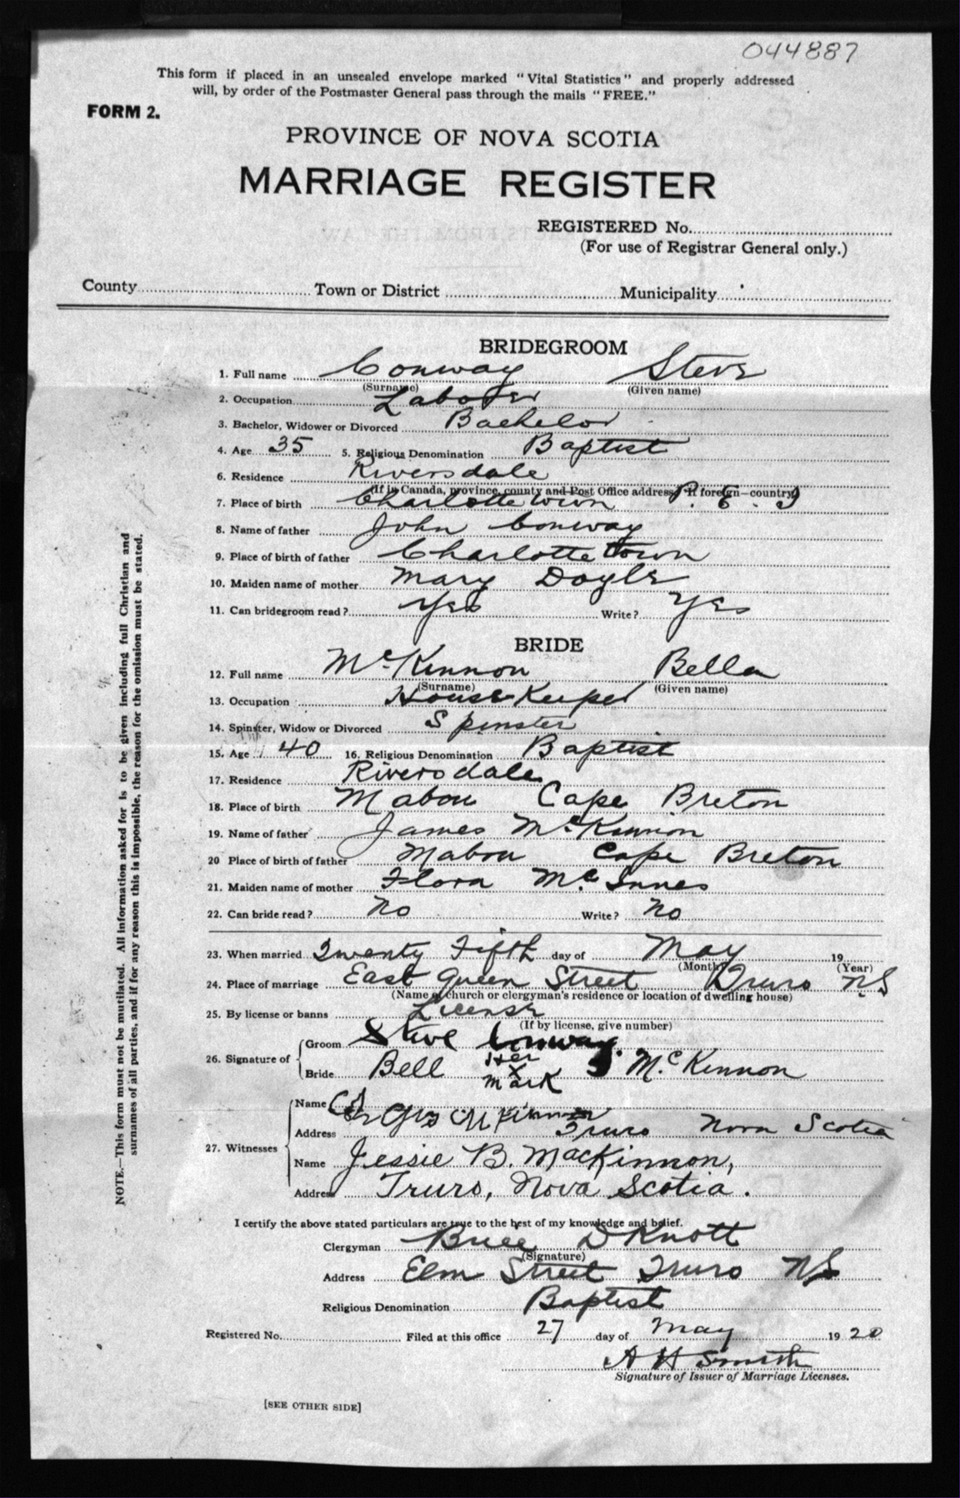 044887
This form if placed in an unsealed envelope marked "Vital Statistics" and properly addressed
will, by order of the Postmaster General pass through the mails "FREE."
FORM 2.
PROVINCE OF NOVA SCOTIA
MARRIAGE REGISTER
REGISTERED No.
(For use of Registrar General only.)
County Town or District Municipality
BRIDEGROOM
1. Full name Conway Steve
(Surname) (Given name)
2. Occupation Laborer
3. Bachelor, Widower or Divorced Bachelor
4. Age 35 5. Religious Denomination Baptist
6. Residence Riversdale
(If in Canada, province, county and Post Office address; if foreign—country)
7. Place of birth Charlottetown P. E. I
8. Name of father John Conway
9. Place of birth of father Charlottetown
10. Maiden name of mother Mary Doyle
11. Can bridegroom read? Yes Write? Yes
BRIDE
12. Full name McKinnon Bella
(Surname) (Given name)
13. Occupation House Keeper
14. Spinster, Widow or Divorced Spinster
15. Age 40 16. Religious Denomination Baptist
17. Residence Riversdale
18. Place of birth Mabou Cape Breton
19. Name of father James McKinnon
20 Place of birth of father Mabou Cape Breton
21. Maiden name of mother Flora McInnes
22. Can bride read? No Write? No
23. When married Twenty Fifth day of May 19
(Month) (Year)
24. Place of marriage East Queen Street Truro NS
(Name of church or clergyman's residence or location of dwelling house)
25. By license or banns License
(If by license, give number)
26. Signature of
Groom Steve Conway
Bride Bell Her X mark McKinnon
27. Witnesses
Name
Address Truro Nova Scotia
Name Jessie B. MacKinnon,
Address Truro, Nova Scotia.
I certify the above stated particulars are true to the best of my knowledge and belief.
Clergyman D Knott
(Signature)
Address Elm Street Truro NS
Religious Denomination Baptist
Registered No. Filed at this office 27 day of May 1920
A H Smith
Signature of Issuer of Marriage Licenses.
[SEE OTHER SIDE]
NOTE.—This form must not be mutilated. All information asked for is to be given including full Christian and
surnames of all parties, and if for any reason this is impossible, the reason for the omission must be stated.